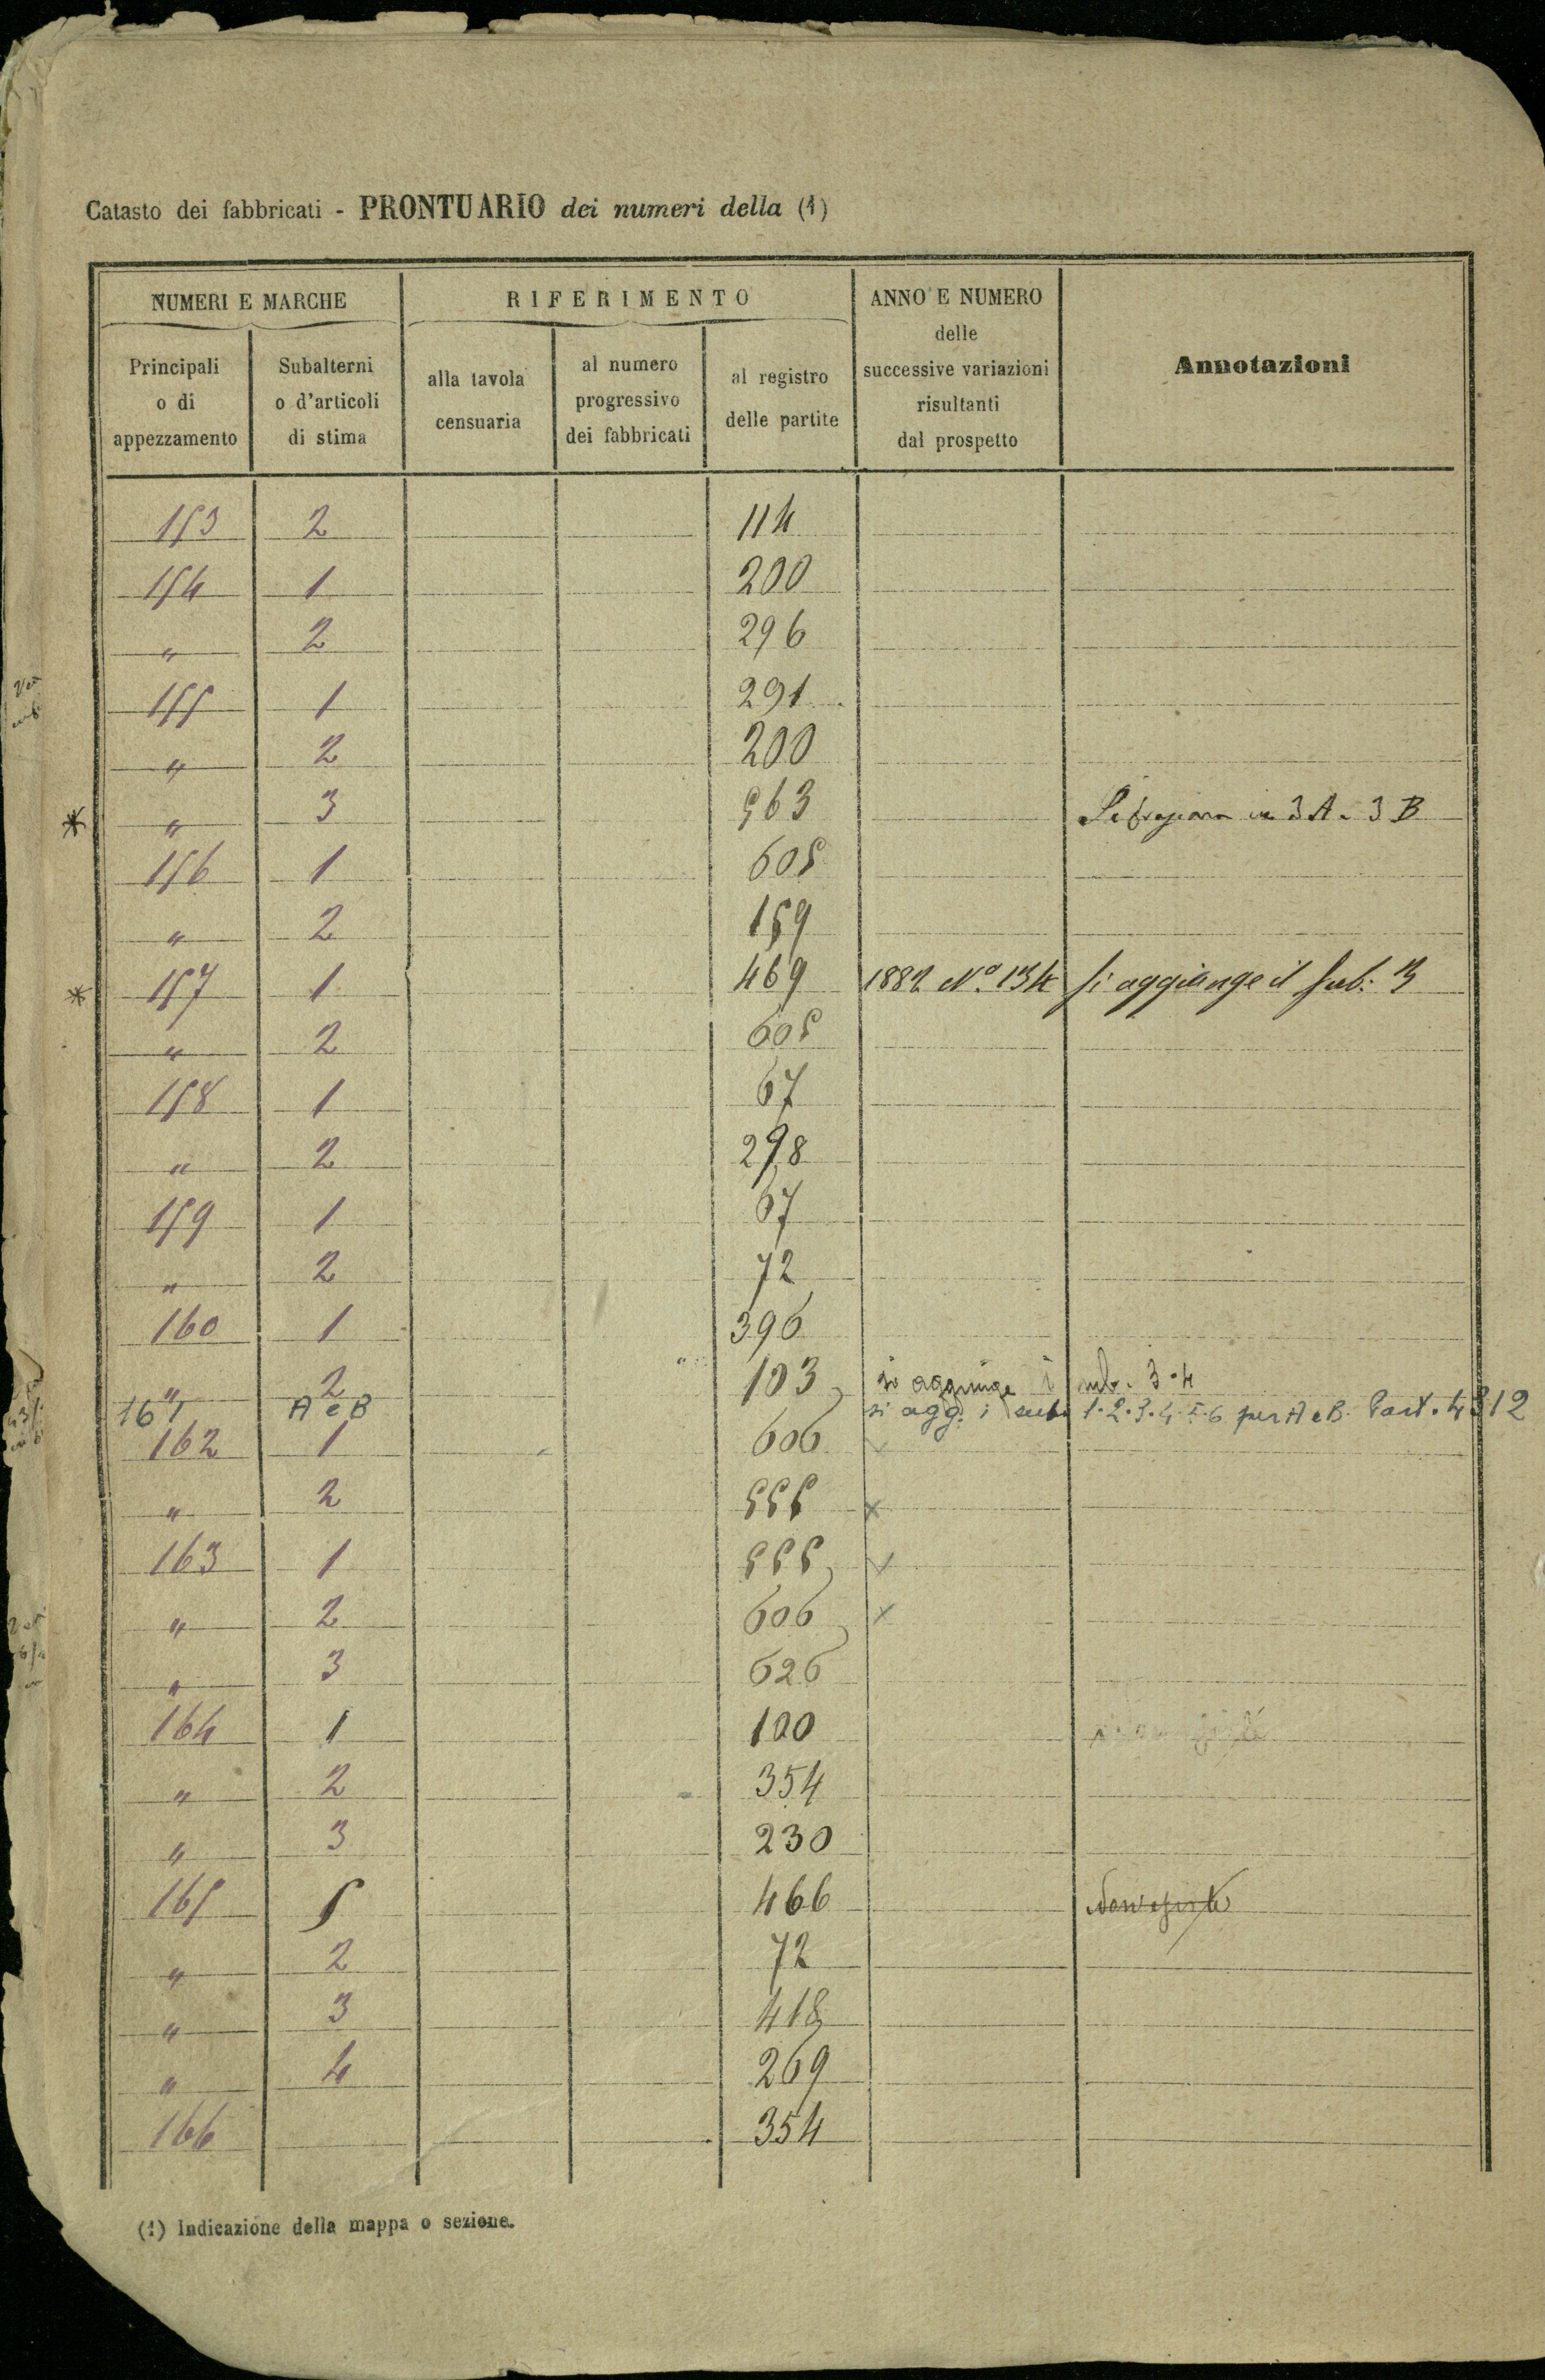 Catasto dei fabbricati - PRONTUARIO dei numeri della (1)
NUMERI E MARCHE
RIFERIMENTO
ANNO E NUMERO
delle
successive variazioni
risultanti
dal prospetto
Annotazioni
Principali
o di
appezzamento
Subalterni
o d'articoli
di stima
alla tavola
censuaria
al numero
progressivo
dei fabbricati
al registro
delle partite
153 2 114
154 1 200
" 2 296
155 1 291
" 2 200
* " 3 563 Si fraziona in 3 A - 3 B
156 1 605
" 2 159
* 157 1 469 1882 No. 134 Si aggiunge il sub: 3
" 2 605
158 1 67
" 2 298
159 1 67
" 2 72
160 1 396
" 2 103 si aggiunge i sub. 3-4
161 A e B si agg. i sub. 1-2-3-4-5-6 per A e B. Part. 4312
162 1 606
" 2 555 x
163 1 555
" 2 606 x
" 3 626
164 1 100
" 2 354
" 3 230
165 1 466 Non esiste
" 2 72
" 3 418
" 4 269
166 354
(1) Indicazione della mappa o sezione.